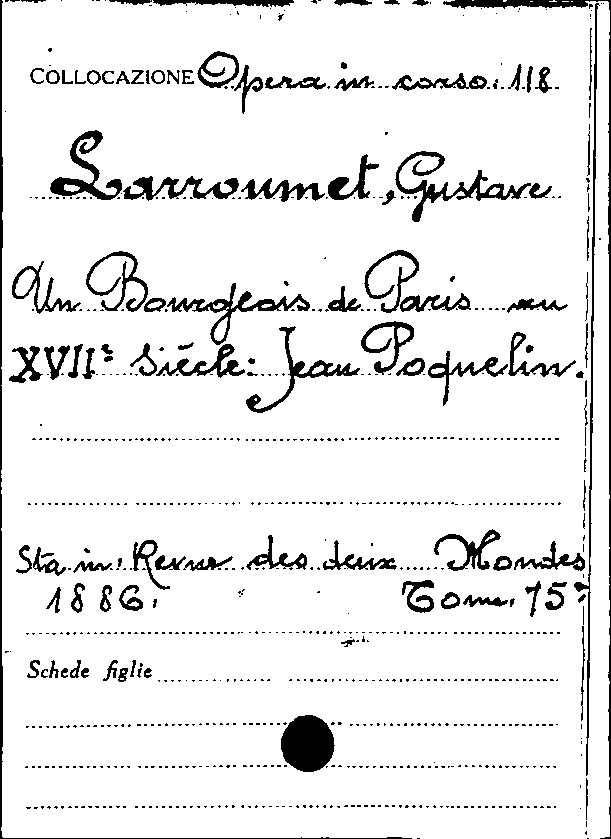 COLLOCAZIONE Opera in corso. 118
Larroumet, Gustave
Un Bourgeois de Paris au
XVIIe Siècle: Jean Poquelin.
Sta in: Revue des deux Mondes
1886. Tome. 75e
Schede figlie